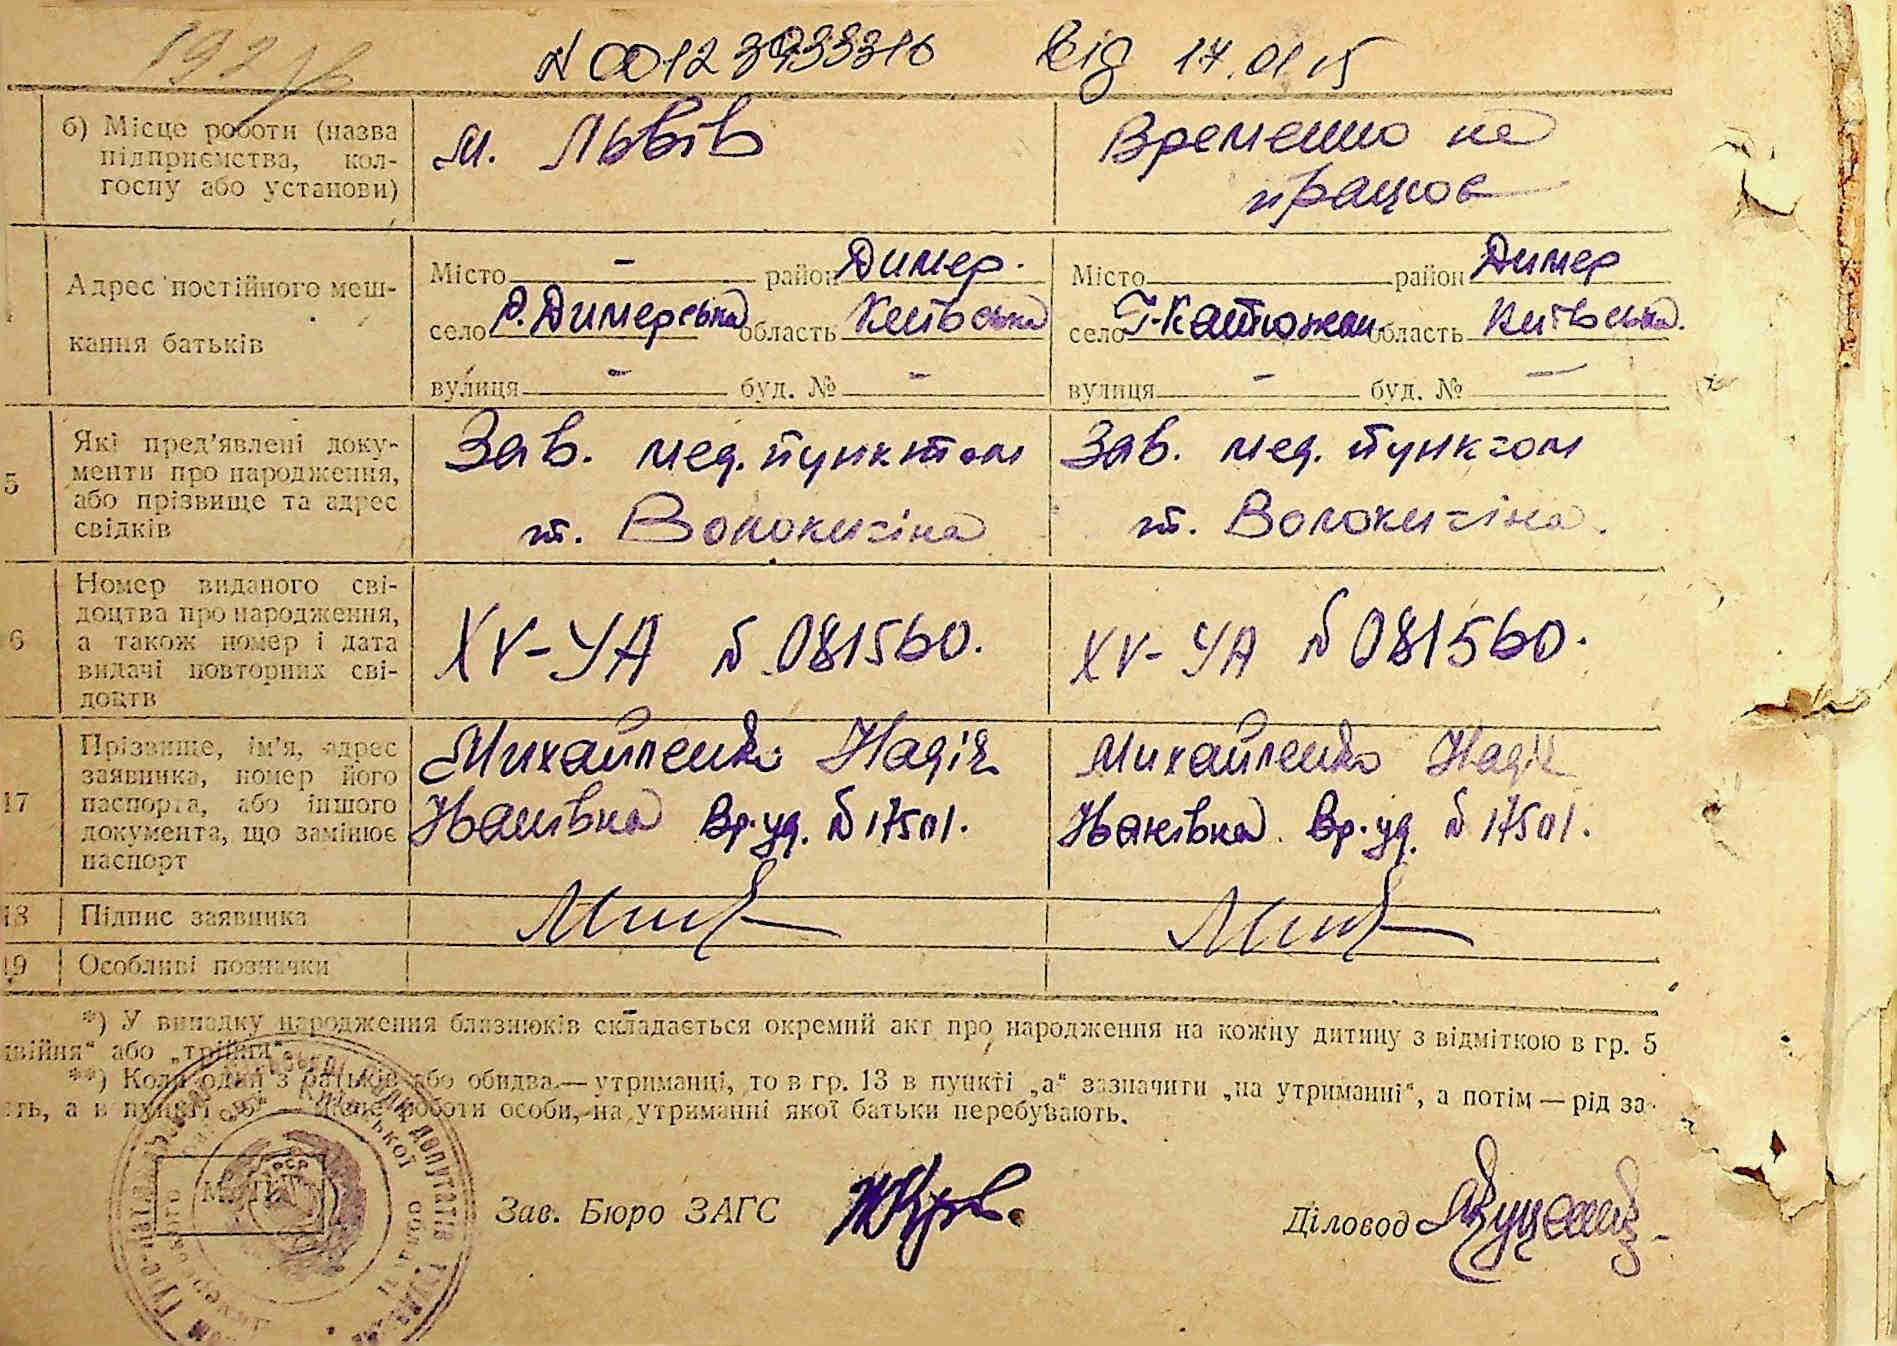 N 00123933316 від 17.01.15
б) Місце роботи (назва підприємства, колгоспу або установи)
м. Львів
Временно не
працює
Адрес постійного мешкання батьків
Місто — район Димер.
село Р. Димерська область Київська
вулиця — буд. № —
Місто район Димер
село область Київська.
вулиця — буд. № —
5
Які пред'явлені документи про народження, або прізвище та адрес свідків
Зав. мед. пунктом
т. Волокитіна
Зав. мед. пунктом
т. Волокитіна.
6
Номер виданого свідоцтва про народження, а також номер і дата видачі повторних свідоцтв
XV-УА № 081560.
XV-УА № 081560.
17
Прізвище, ім'я, адрес заявника, номер його паспорта, або іншого документа, що замінює паспорт
Михайленко Надія
Іванівна Вр. уд. № 17501.
Михайленко Надія
Іванівна Вр. уд. № 17501.
18
Підпис заявника
19
Особливі позначки
*) У випадку народження близнюків складається окремий акт про народження на кожну дитину з відміткою в гр. 5
„двійня“ або „трійня“.
**) Коли один з батьків або обидва — утриманці, то в гр. 13 в пункті „а“ зазначити „на утриманні“, а потім — рід за-
ть, а в пункті місце роботи особи, на утриманні якої батьки перебувають.
М. П.
Київської області
депутатів
Зав. Бюро ЗАГС
Діловод